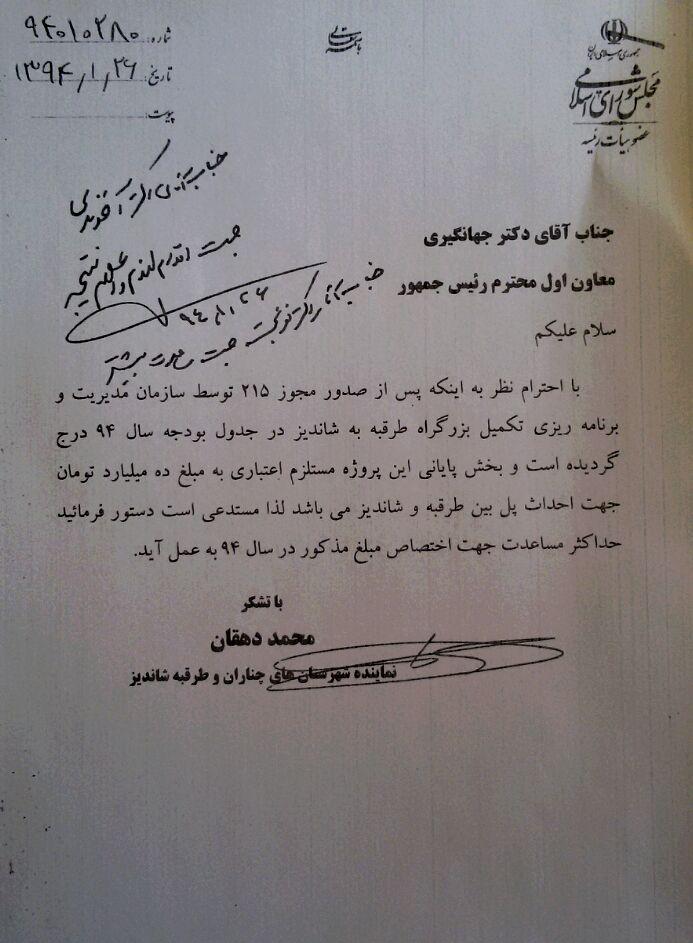 جمهوری اسلامی ایران
مجلس شورای اسلامی
عضو هیأت رئیسه
باسمه تعالی
شماره: ۹۴۰۱۰۲۸۰
تاریخ: ۱۳۹۴/۱/۲۶
پیوست:
جناب آقای دکتر آخوندی
جهت اقدام لازم و اعلام نتیجه
جناب آقای دکتر جهانگیری
معاون اول محترم رئیس جمهور
سلام علیکم
با احترام نظر به اینکه پس از صدور مجوز ۲۱۵ توسط سازمان مدیریت و
برنامه ریزی تکمیل بزرگراه طرقبه به شاندیز در جدول بودجه سال ۹۴ درج
گردیده است و بخش پایانی این پروژه مستلزم اعتباری به مبلغ ده میلیارد تومان
جهت احداث پل بین طرقبه و شاندیز می باشد لذا مستدعی است دستور فرمائید
حداکثر مساعدت جهت اختصاص مبلغ مذکور در سال ۹۴ به عمل آید.
با تشکر
محمد دهقان
نماینده شهرستان های چناران و طرقبه شاندیز